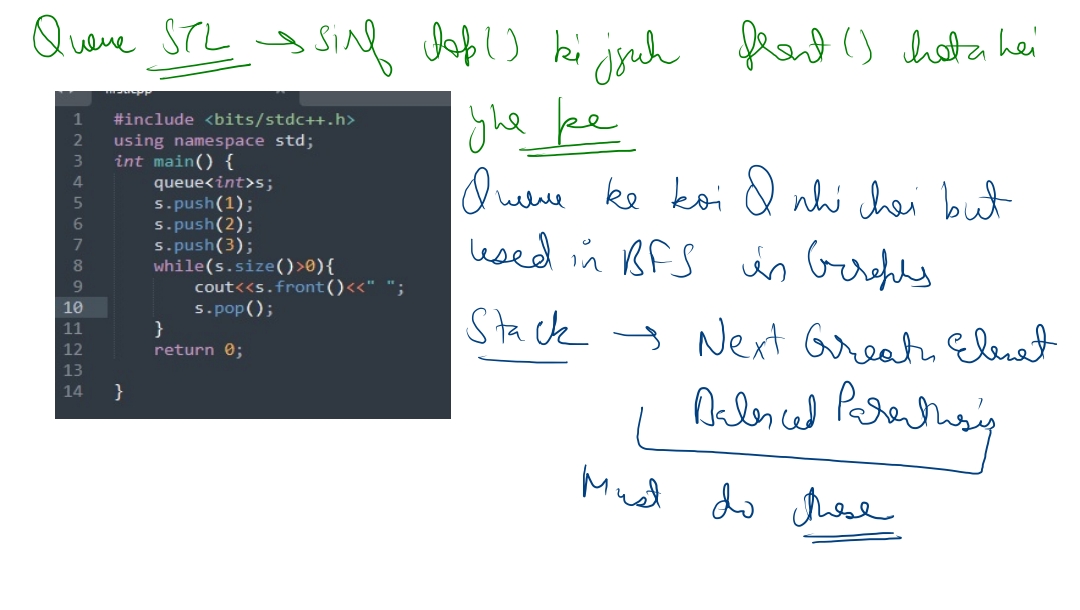 Queue STL → sirf top() ki jgah front() hota hai
yhe pe
#include <bits/stdc++.h>
using namespace std;
int main() {
queue<int>s;
s.push(1);
s.push(2);
s.push(3);
while(s.size()>0){
cout<<s.front()<<" ";
s.pop();
}
return 0;
}
1
2
3
4
5
6
7
8
9
10
11
12
13
14
Queue ke koi Q nhi hai but
used in BFS in Graphs
Stack → Next Greater Element
Balanced Parenthesis
Must do these